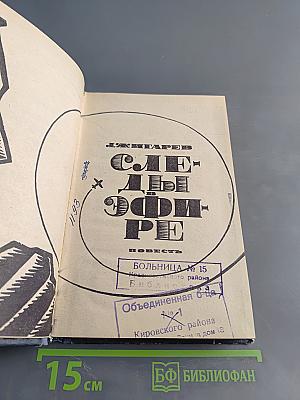 Л. ЖИГАРЕВ
СЛЕ-
ДЫ
В
ЭФИ-
РЕ
ПОВЕСТЬ
1193
БОЛЬНИЦА № 15
района
Библиотека
Объединенная б-ца
№ 1
Кировского района
дом 18
15 см
БФ БИБЛИОФАН